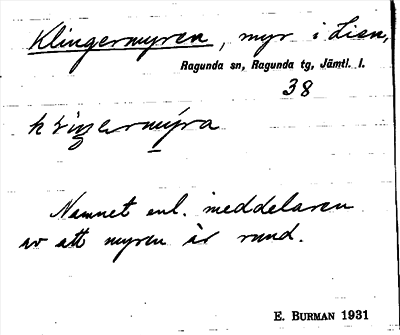 Klingermyren, myr i Lien,
Ragunda sn, Ragunda tg, Jämtl. l.
38
Namnet enl. meddelaren
av att myren är rund.
E. BURMAN 1931